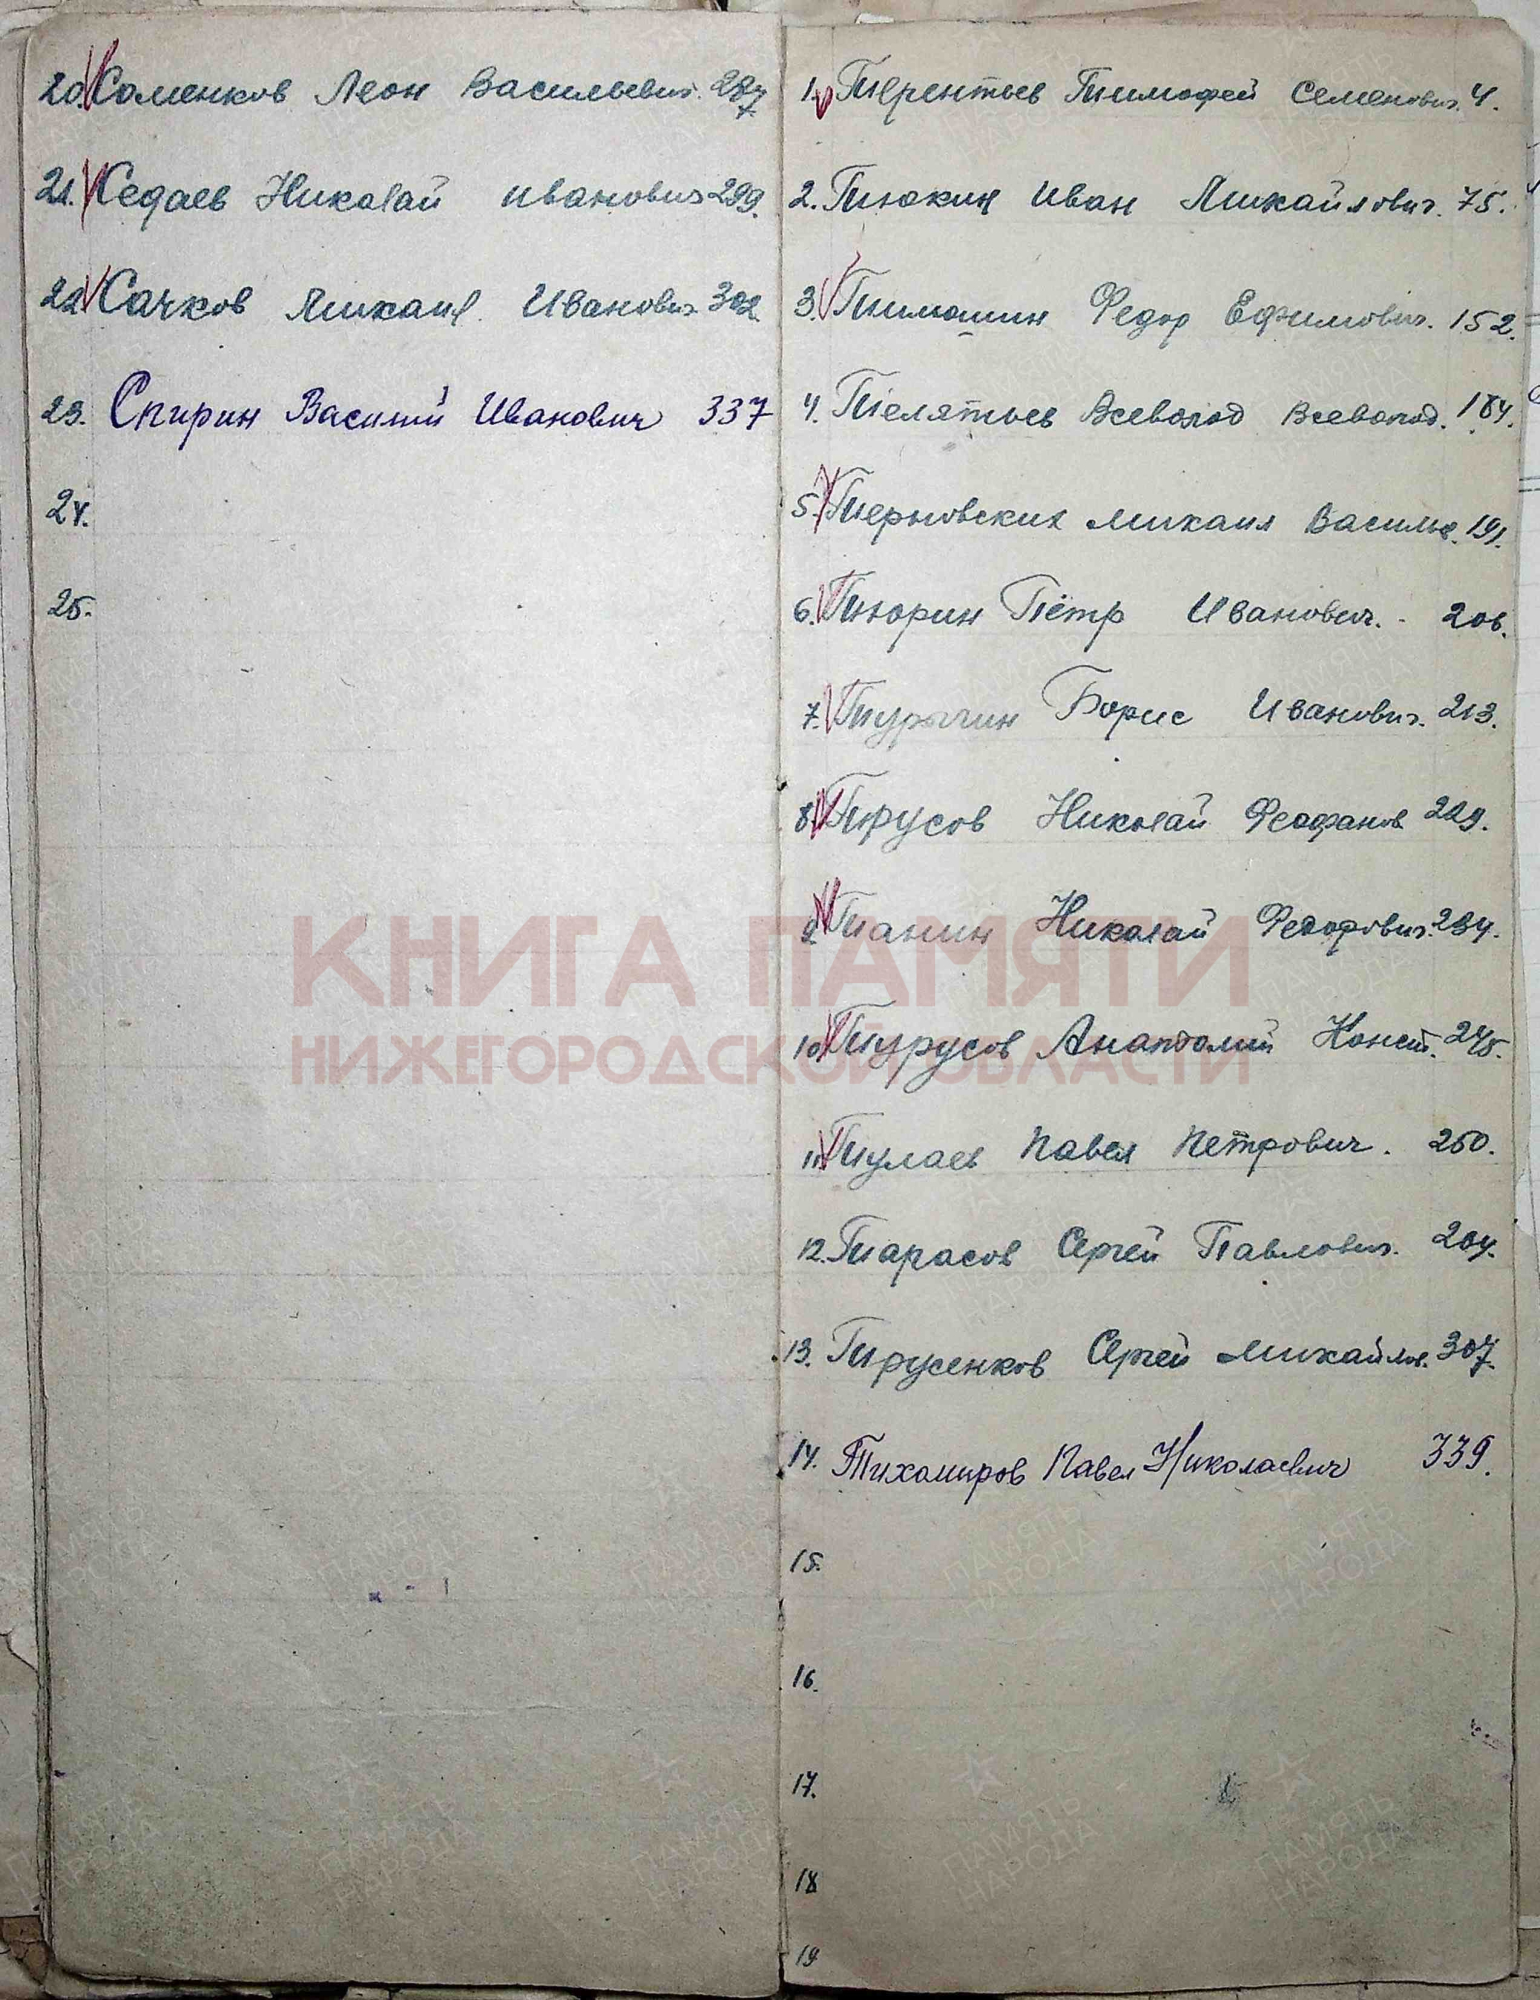 20. Саменков Леон Васильевич. 287
21. Седаев Николай Иванович 299.
22. Сачков Михаил Иванович 302.
23. Спирин Василий Иванович 337
24.
25.
1. Терентьев Тимофей Семенович. 4.
2. Тюкин Иван Михайлович. 75.
3. Тимошин Федор Ефимович. 152.
4. Телятьев Всеволод Всеволод. 184.
5. Терновских Михаил Василье. 191.
6. Тюрин Пётр Иванович. 206.
7. Турычин Борис Иванович. 213.
8. Трусов Николай Феофанов 229.
9. Танин Николай Федорович. 234.
10. Турусов Анатолий Конст. 245.
11. Тулаев Павел Петрович. 250.
12. Тарасов Сергей Павлович. 264.
13. Трусенков Сергей Михайлов. 307.
14. Тихомиров Павел Николаевич 339.
15.
16.
17.
18
19
КНИГА ПАМЯТИ
НИЖЕГОРОДСКОЙ ОБЛАСТИ
ПАМЯТЬ
НАРОДА